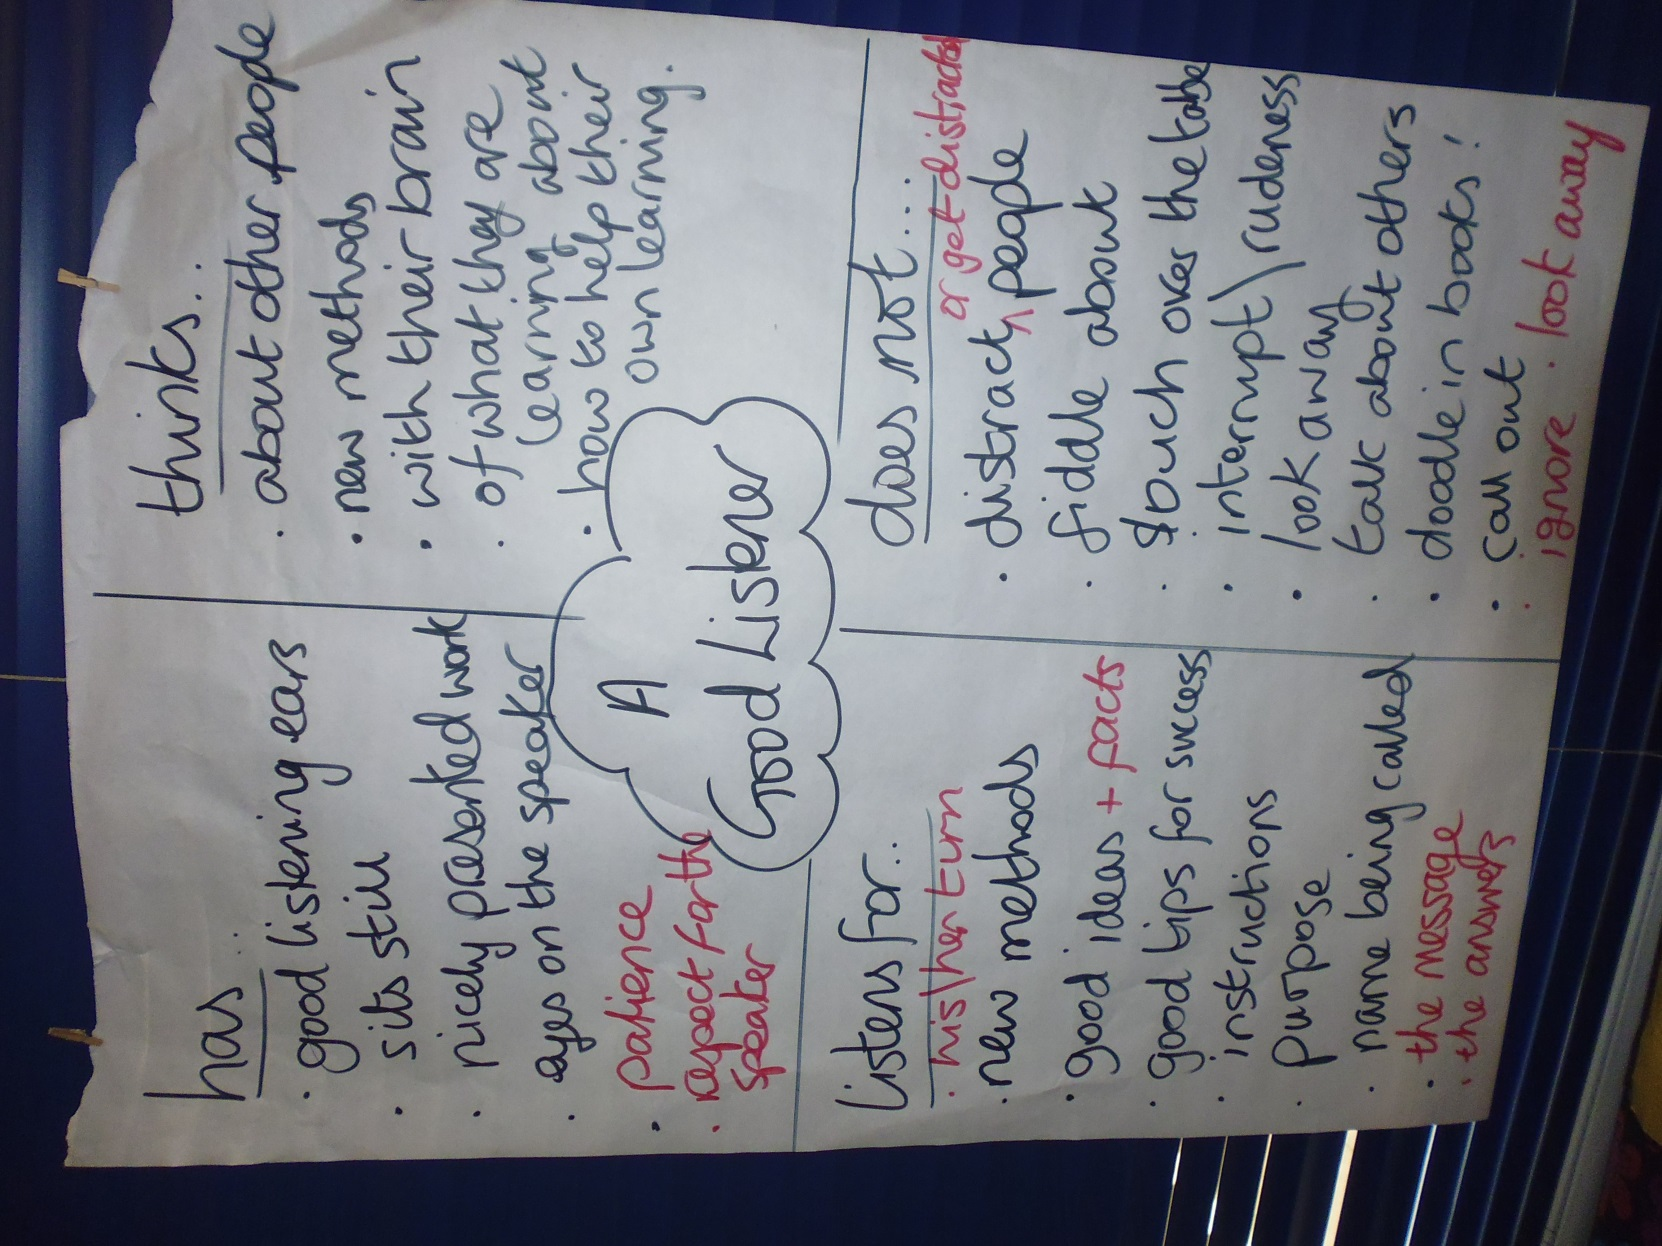 has...
· good listening ears
· sits still
· nicely presented work
· eyes on the speaker
· patience
· respect for the
speaker
thinks...
· about other people
· new methods
· with their brain
· of what they are
learning about
· how to help their
own learning.
A
Good Listener
Listens for...
· his\her turn
· new methods
· good ideas + facts
· good tips for success
· instructions
· purpose
· name being called
· the message
· the answers
does not....
or get distracted
· distract people
· fiddle about
· slouch over the table
· interrupt\rudeness
· look away
· talk about others
· doodle in books!
· call out
· ignore · look away